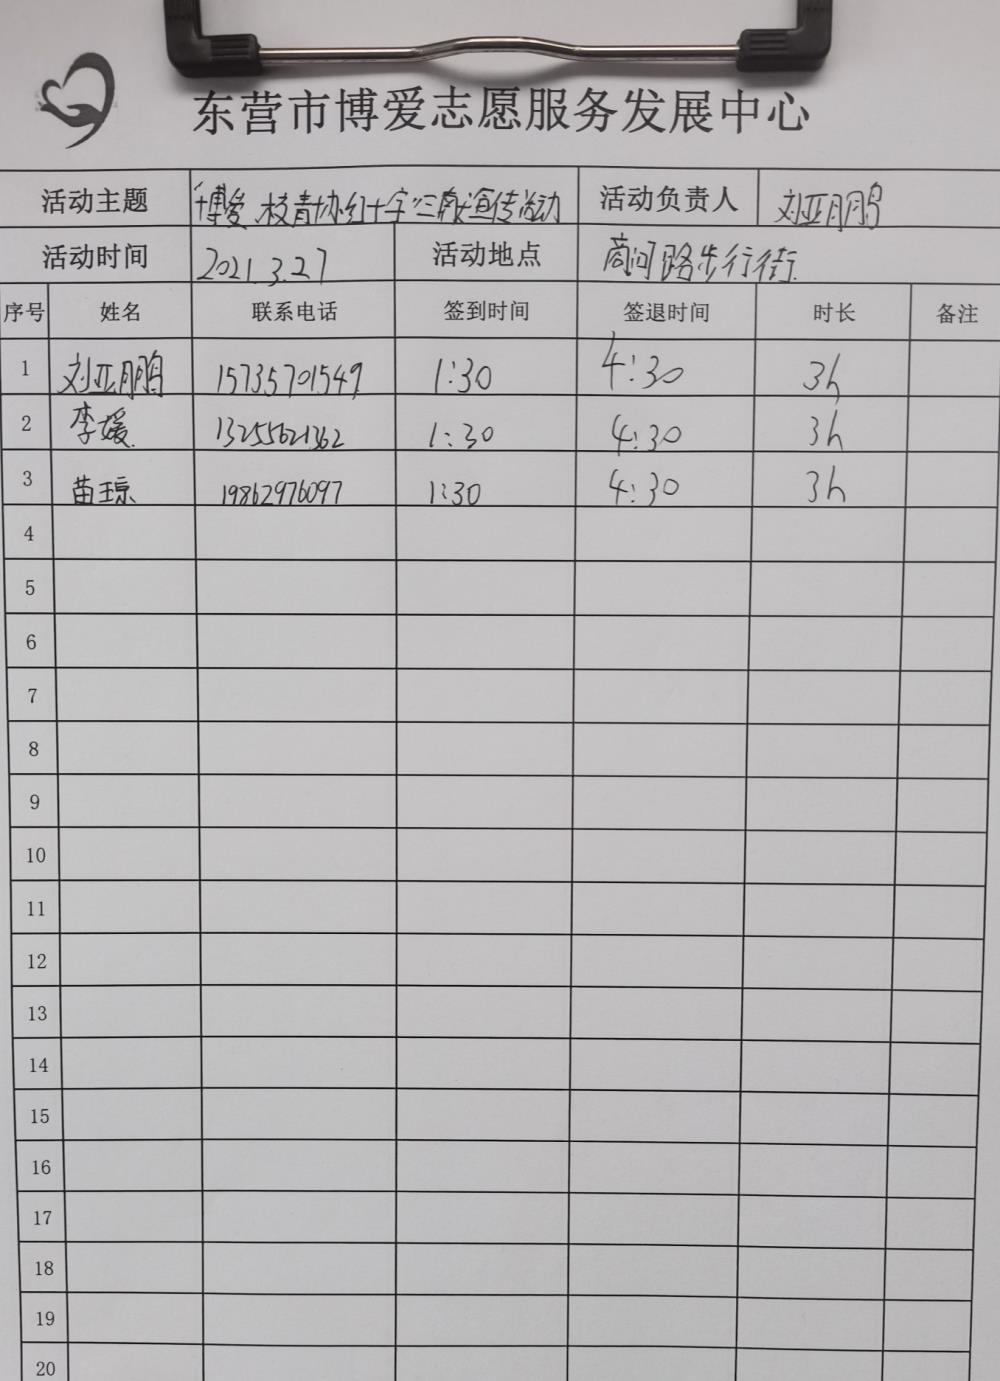 东营市博爱志愿服务发展中心
活动主题 博爱、校青协红十字“三献”宣传活动 活动负责人 刘亚鹏
活动时间 2021.3.27 活动地点 商河路步行街
序号 姓名 联系电话 签到时间 签退时间 时长 备注
1 刘亚鹏 15735701549 1:30 4:30 3h
2 李媛 13255621362 1:30 4:30 3h
3 苗琼 19862976097 1:30 4:30 3h
4
5
6
7
8
9
10
11
12
13
14
15
16
17
18
19
20